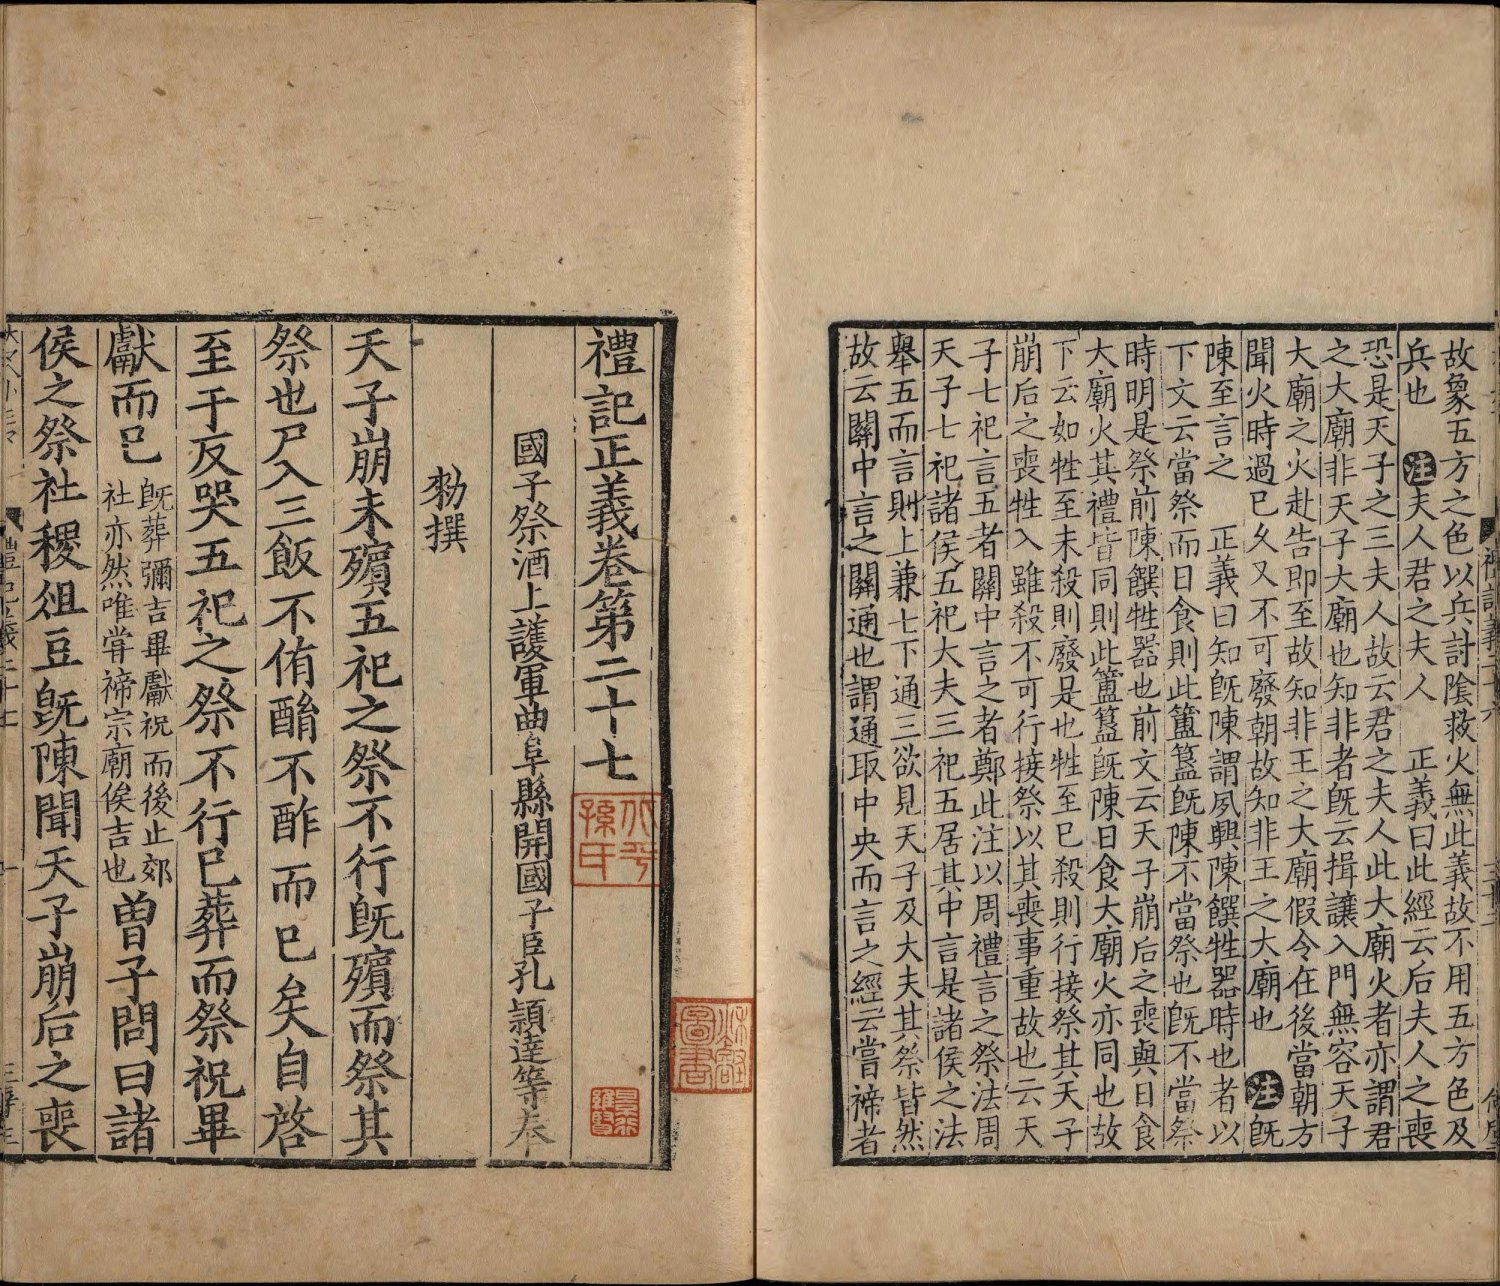 故象五方之色以兵討陰救火無此義故不用五方色及
兵也　注夫人君之夫人　正義曰此經云后夫人之喪
恐是天子之三夫人故云君之夫人此大廟火者亦謂君
之大廟非天子大廟也知非者旣云揖讓入門無容天子
大廟之火赴告即至故知非王之大廟假令在後當朝方
聞火時過已久又不可廢朝故知非王之大廟也　注旣
陳至言之　正義曰知旣陳謂夙興陳饌牲器時也者以
下文云當祭而日食則此簠簋旣陳不當祭也旣不當祭
時明是祭前陳饌牲器也前文云天子崩后之喪與日食
大廟火其禮皆同則此簠簋旣陳日食大廟火亦同也故
下云如牲至未殺則廢是也牲至已殺則行接祭其天子
崩后之喪牲入雖殺不可行接祭以其喪事重故也云天
子七祀言五者關中言之者鄭此注以周禮言之祭法周
天子七祀諸侯五祀大夫三祀五居其中言是諸侯之法
舉五而言則上兼七下通三欲見天子及大夫其祭皆然
故云關中言之關通也謂通取中央而言之經云嘗禘者
禮記正義卷第二十七
國子祭酒上護軍曲阜縣開國子臣孔穎達等奉
勑撰
天子崩未殯五祀之祭不行旣殯而祭其
祭也尸入三飯不侑酳不酢而已矣自啓
至于反哭五祀之祭不行已葬而祭祝畢
獻而已旣葬彌吉畢獻祝而後止郊社亦然唯嘗禘宗廟俟吉也曾子問曰諸
侯之祭社稷俎豆旣陳聞天子崩后之喪